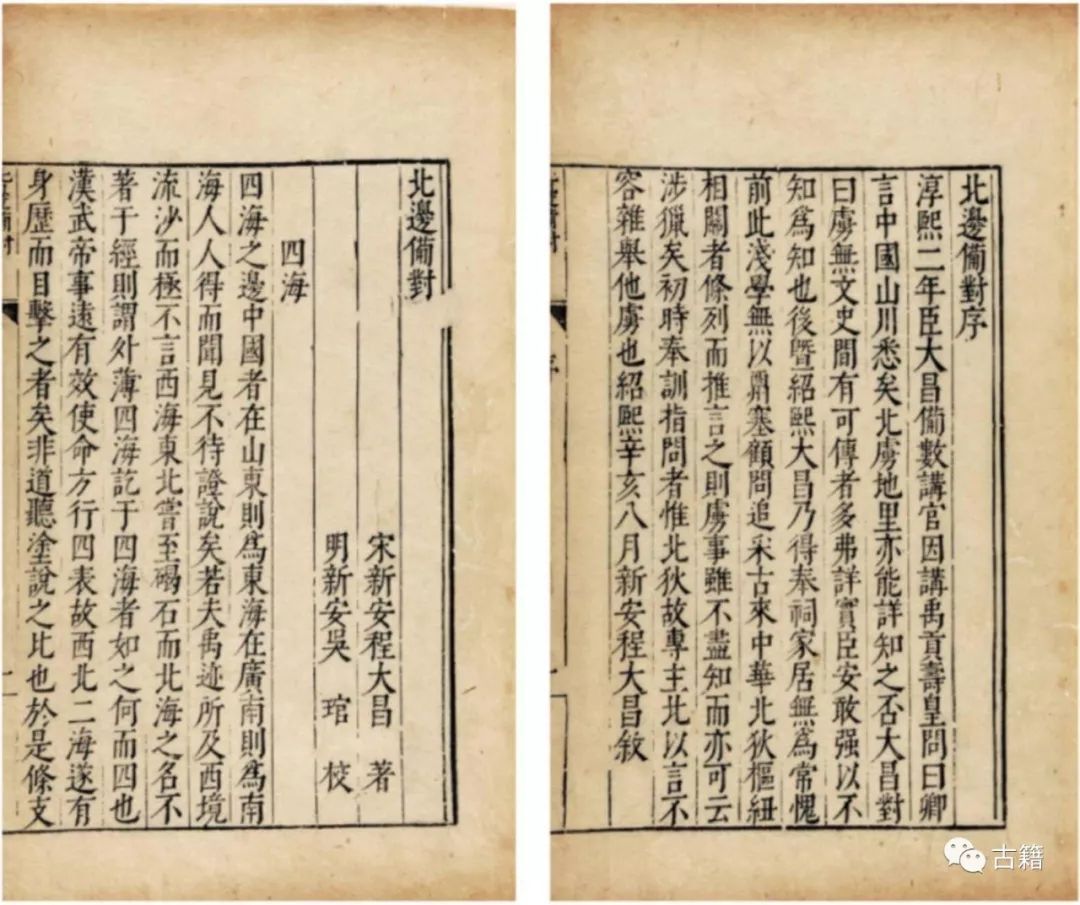 北邊備對序
淳熙二年臣大昌備數講官因講禹貢壽皇問曰卿
言中國山川悉矣北虜地里亦能詳知之否大昌對
曰虜無文史間有可傳者多弗詳實臣安敢强以不
知爲知也後暨紹熙大昌乃得奉祠家居無爲常愧
前此淺學無以𠷳塞顧問追采古來中華北狄樞紐
相關者條列而推言之則虜事雖不盡知而亦可云
涉獵矣初時奉訓指問者惟北狄故專主北以言不
容雜舉他虜也紹熙辛亥八月新安程大昌敘
序
北邊備對
宋新安程大昌著
明新安吳琯校
四海
四海之邊中國者在山東則爲東海在廣南則爲南
海人人得而聞見不待證說矣若夫禹迹所及西境
流沙而極不言西海東北嘗至碣石而北海之名不
著于經則謂外薄四海訖于四海者如之何而四也
漢武帝事遠有效使命方行四表故西北二海遂有
身歷而目擊之者矣非道聽塗說之比也於是條支
北邊備對
一
古籍